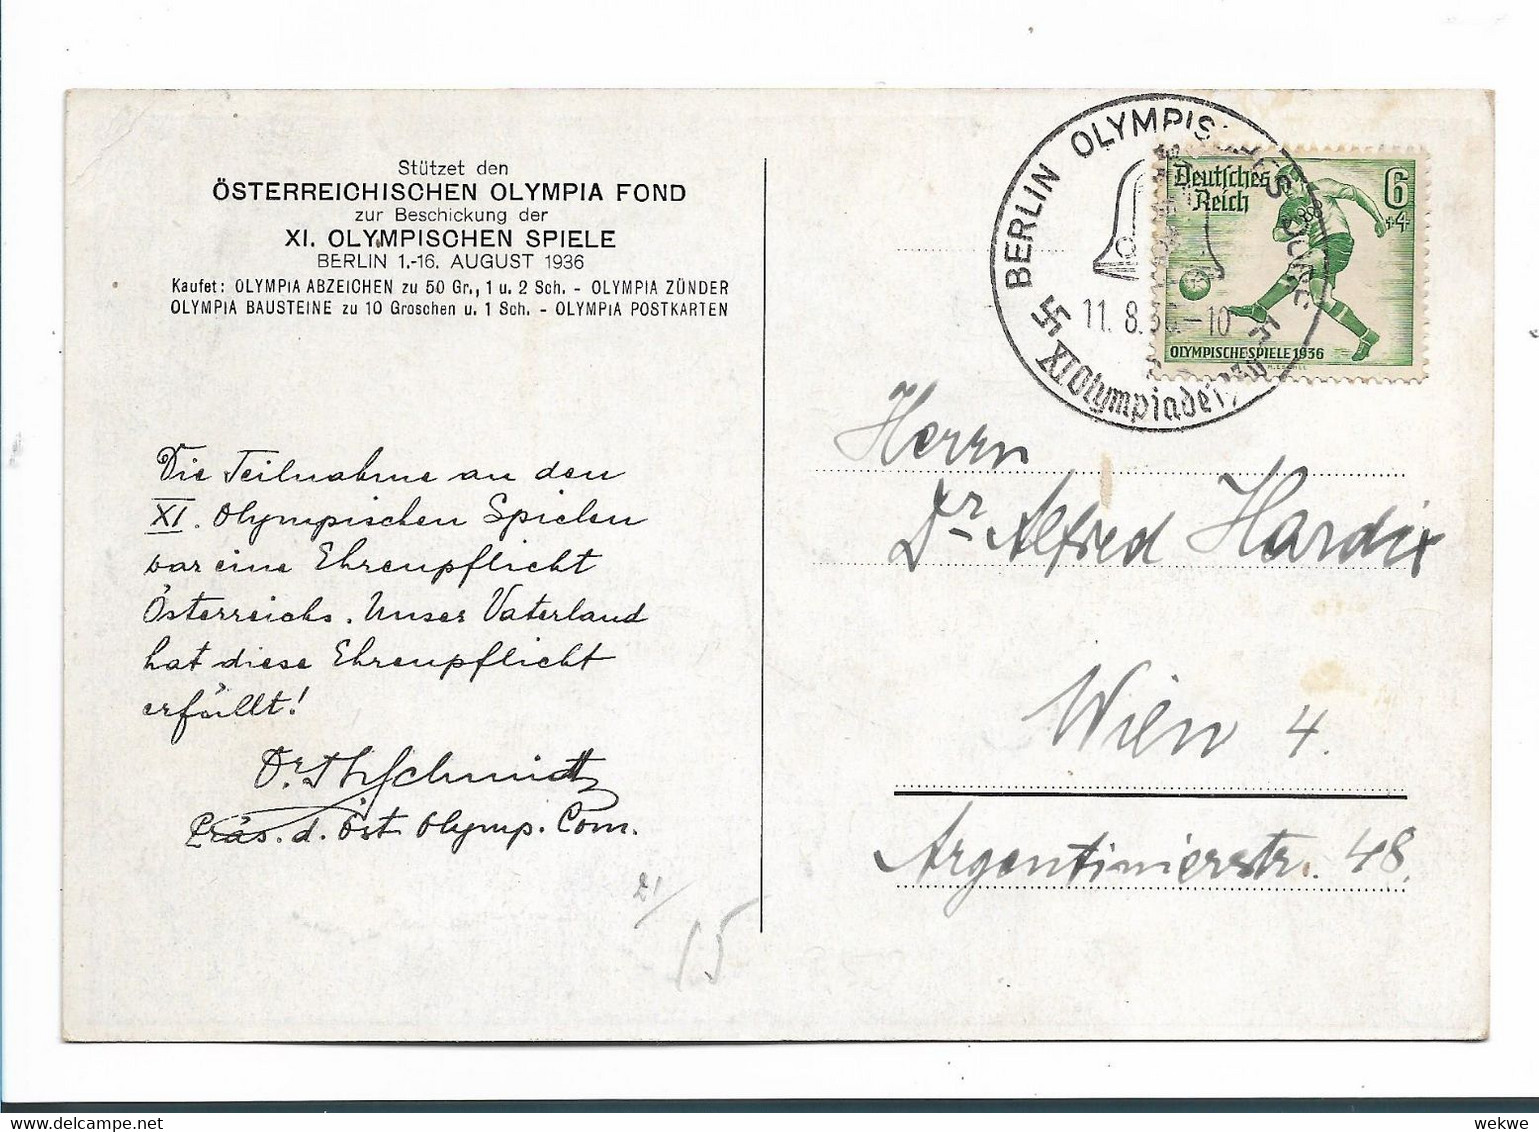 Stützet den
ÖSTERREICHISCHEN OLYMPIA FOND
zur Beschickung der
XI. OLYMPISCHEN SPIELE
BERLIN 1.-16. AUGUST 1936
Kaufet: OLYMPIA ABZEICHEN zu 50 Gr., 1 u. 2 Sch. - OLYMPIA ZÜNDER
OLYMPIA BAUSTEINE zu 10 Groschen u. 1 Sch. - OLYMPIA POSTKARTEN
Die Teilnahme an den
XI. Olympischen Spielen
war eine Ehrenpflicht
Österreichs. Unser Vaterland
hat diese Ehrenpflicht
erfüllt!
Dr. Th Schmidt
Präs. d. Öst. Olymp. Com.
21/
15
BERLIN OLYMPISCHES DORF
11. 8. 36 -10
XI Olympiade 1936
Deutsches
Reich
6
+4
OLYMPISCHE SPIELE 1936
Herrn
Dr. Alfred Hardix
Wien 4.
Argentinierstr. 48.
wekwe